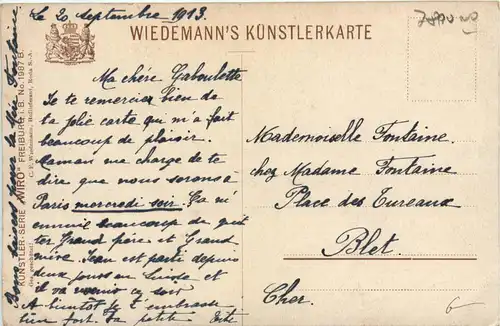 Le 20 septembre 1913.
WIEDEMANN'S KÜNSTLERKARTE
Ma chère Gaboulette
Je te remercie bien de
ta jolie carte qui m'a fait
beaucoup de plaisir.
Maman me charge de te
dire que nous serons à
Paris mercredi soir. Ça m'
ennuie beaucoup de quit
ter Grand père et Grand
mère. Jean est parti depuis
deux jours en Suisse et
il va revenir ce soir
A bientôt je t'embrasse
bien fort. Ta petite
Mademoiselle Fontaine
chez Madame Fontaine
Place des Tureaux
Blet.
Cher.
Bons baisers pour la Mère Fontaine.
KÜNSTLER-SERIE „WIRO" FREIBURG i. B. No. 1987 B
Ges. geschützt. C. F. Wiedemann, Hoflieferant, Roda S.-A.
6